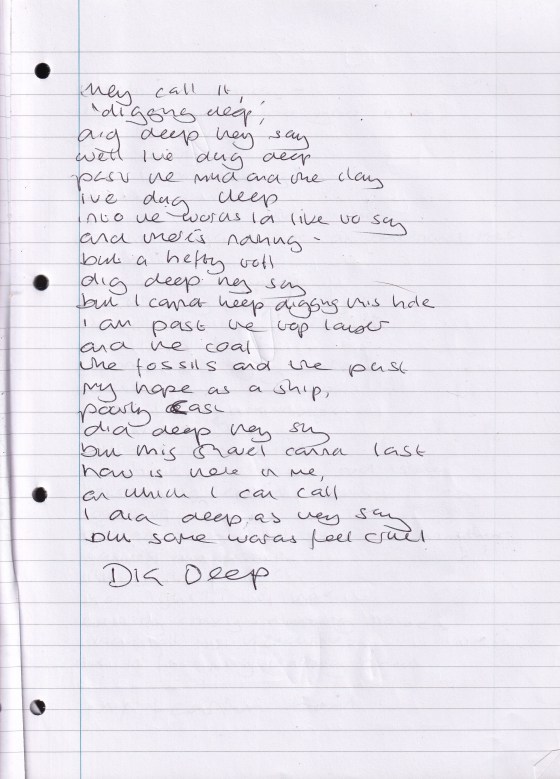 they call it,
'digging deep',
dig deep they say
well I've dug deep
past the mud and the clay
I've dug deep
into the words I'd like to say
and there's nothing -
but a hefty
dig deep they say
but I cannot keep digging this hole
I am past the top layer
and the coal
the fossils and the past
my hope as a ship,
poorly cast
dig deep they say
but this shovel cannot last
is there in me,
on which I can call
I dig deep, as they say
but some words feel cruel
Dig Deep